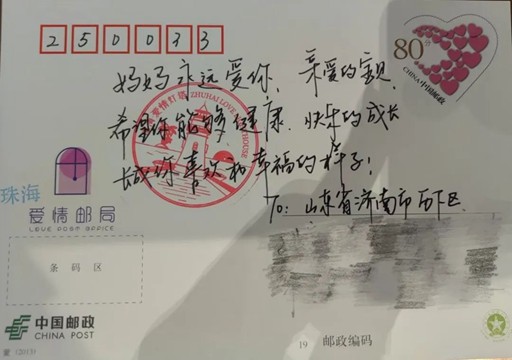 250033
80分
CHINA 中国邮政
妈妈永远爱你，亲爱的宝贝，
希望你能够健康、快乐的成长
长成你喜欢和幸福的样子！
爱情灯塔 ZHUHAI LOVE
HOUSE
TO：山东省济南市历下区
珠海
爱情邮局
LOVE POST OFFICE
条码区
中国邮政
CHINA POST
19 邮政编码